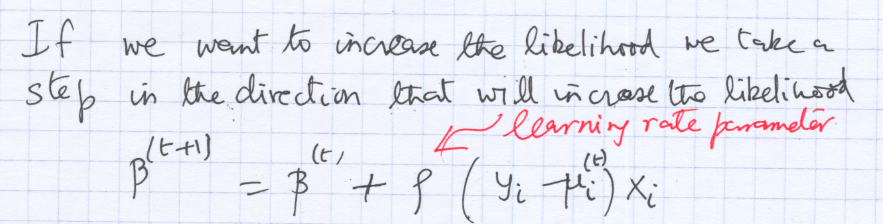 If we want to increase the likelihood we take a
step in the direction that will increase the likelihood
learning rate parameter
β^(t+1) = β^(t) + ρ (y_i - μ_i^(t)) x_i